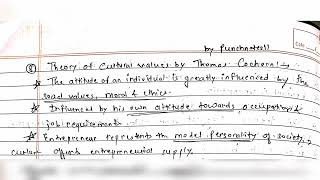 by Punchnotes!!
⑧ Theory of Cultural values by Thomas Cocheral :-
* The attitude of an individual is greatly influenced by the
values, moral & ethics.
* Influenced by his own attitude towards occupation &
job requirements.
* Entrepreneur represents the model personality of society,
affects entrepreneurial supply.